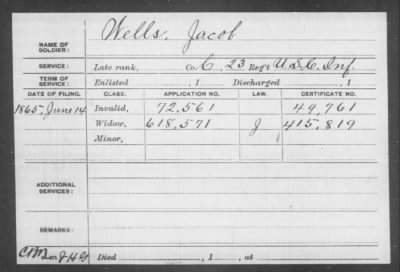 Wells. Jacob
NAME OF SOLDIER:
SERVICE: Late rank, Co. C, 23 Reg't U.S.C. Inf.
TERM OF SERVICE: Enlisted , 1 Discharged , 1
DATE OF FILING. CLASS. APPLICATION NO. LAW. CERTIFICATE NO.
1865, June 14 Invalid, 72,561 49,761
Widow, 618,571 J 415,819
Minor,
ADDITIONAL SERVICES:
REMARKS:
Died , 1 , at